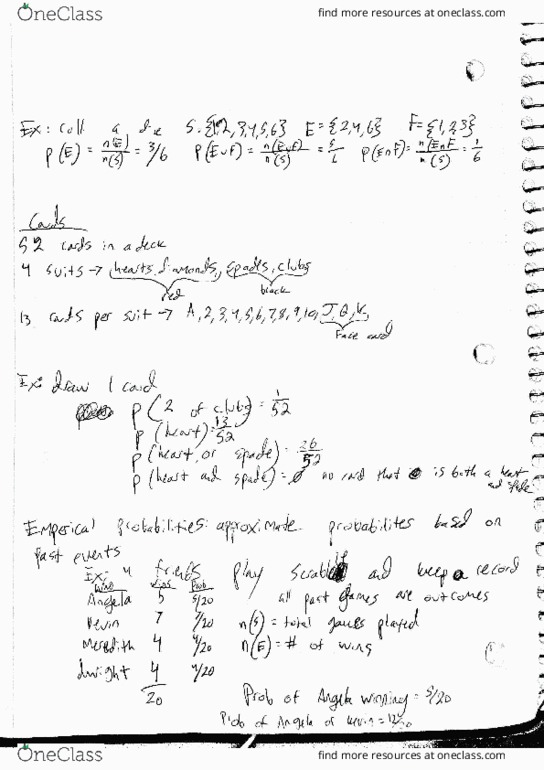 OneClass find more resources at oneclass.com
Ex: roll a die S={1,2,3,4,5,6} E={2,4,6} F={1,2,3}
P(E) = n(E)/n(S) = 3/6 P(E∪F) = n(E∪F)/n(S) = 5/6 P(E∩F) = n(E∩F/n(S) = 1/6
Cards
52 cards in a deck
4 suits → hearts, diamonds, spades, clubs
red black
13 cards per suit → A,2,3,4,5,6,7,8,9,10, J,Q,K
Face card
Ex: draw 1 card
P(2 of clubs) = 1/52
P(heart) = 13/52
P(heart or spade) = 26/52
P(heart and spade) = 0 no card that is both a heart and spade
Emperical probabilities: approximate probabilites based on
past events
Ex: 4 friends play scrabble and keep a record
wins prob all past games are outcomes
Angela 5 5/20
Kevin 7 7/20 n(S) = total games played
Meredith 4 4/20 n(E) = # of wins
dwight 4 4/20
20 Prob of Angela winning = 5/20
Prob of Angela or Kevin = 12/20
OneClass find more resources at oneclass.com